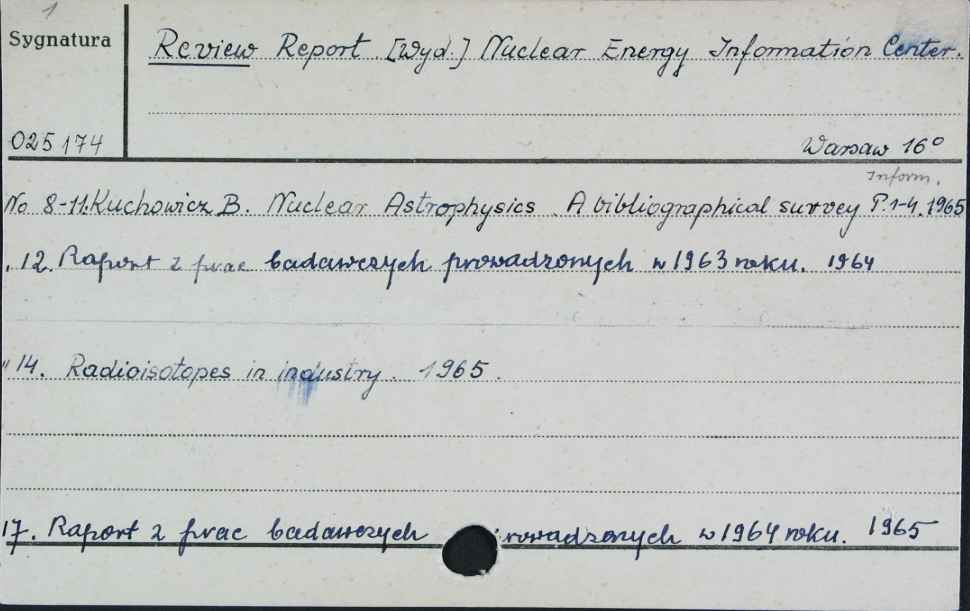 1
Sygnatura
Review Report. [Wyd.] Nuclear Energy Information Center.
025174
Warsaw 16°
Inform.
No 8-11. Kuchowicz B. Nuclear Astrophysics. A bibliographical survey P. 1-4. 1965
„ 12. Raport z prac badawczych prowadzonych w 1963 roku. 1964
" 14. Radioisotopes in industry. 1965.
17. Raport z prac badawczych rowadzonych w 1964 roku. 1965